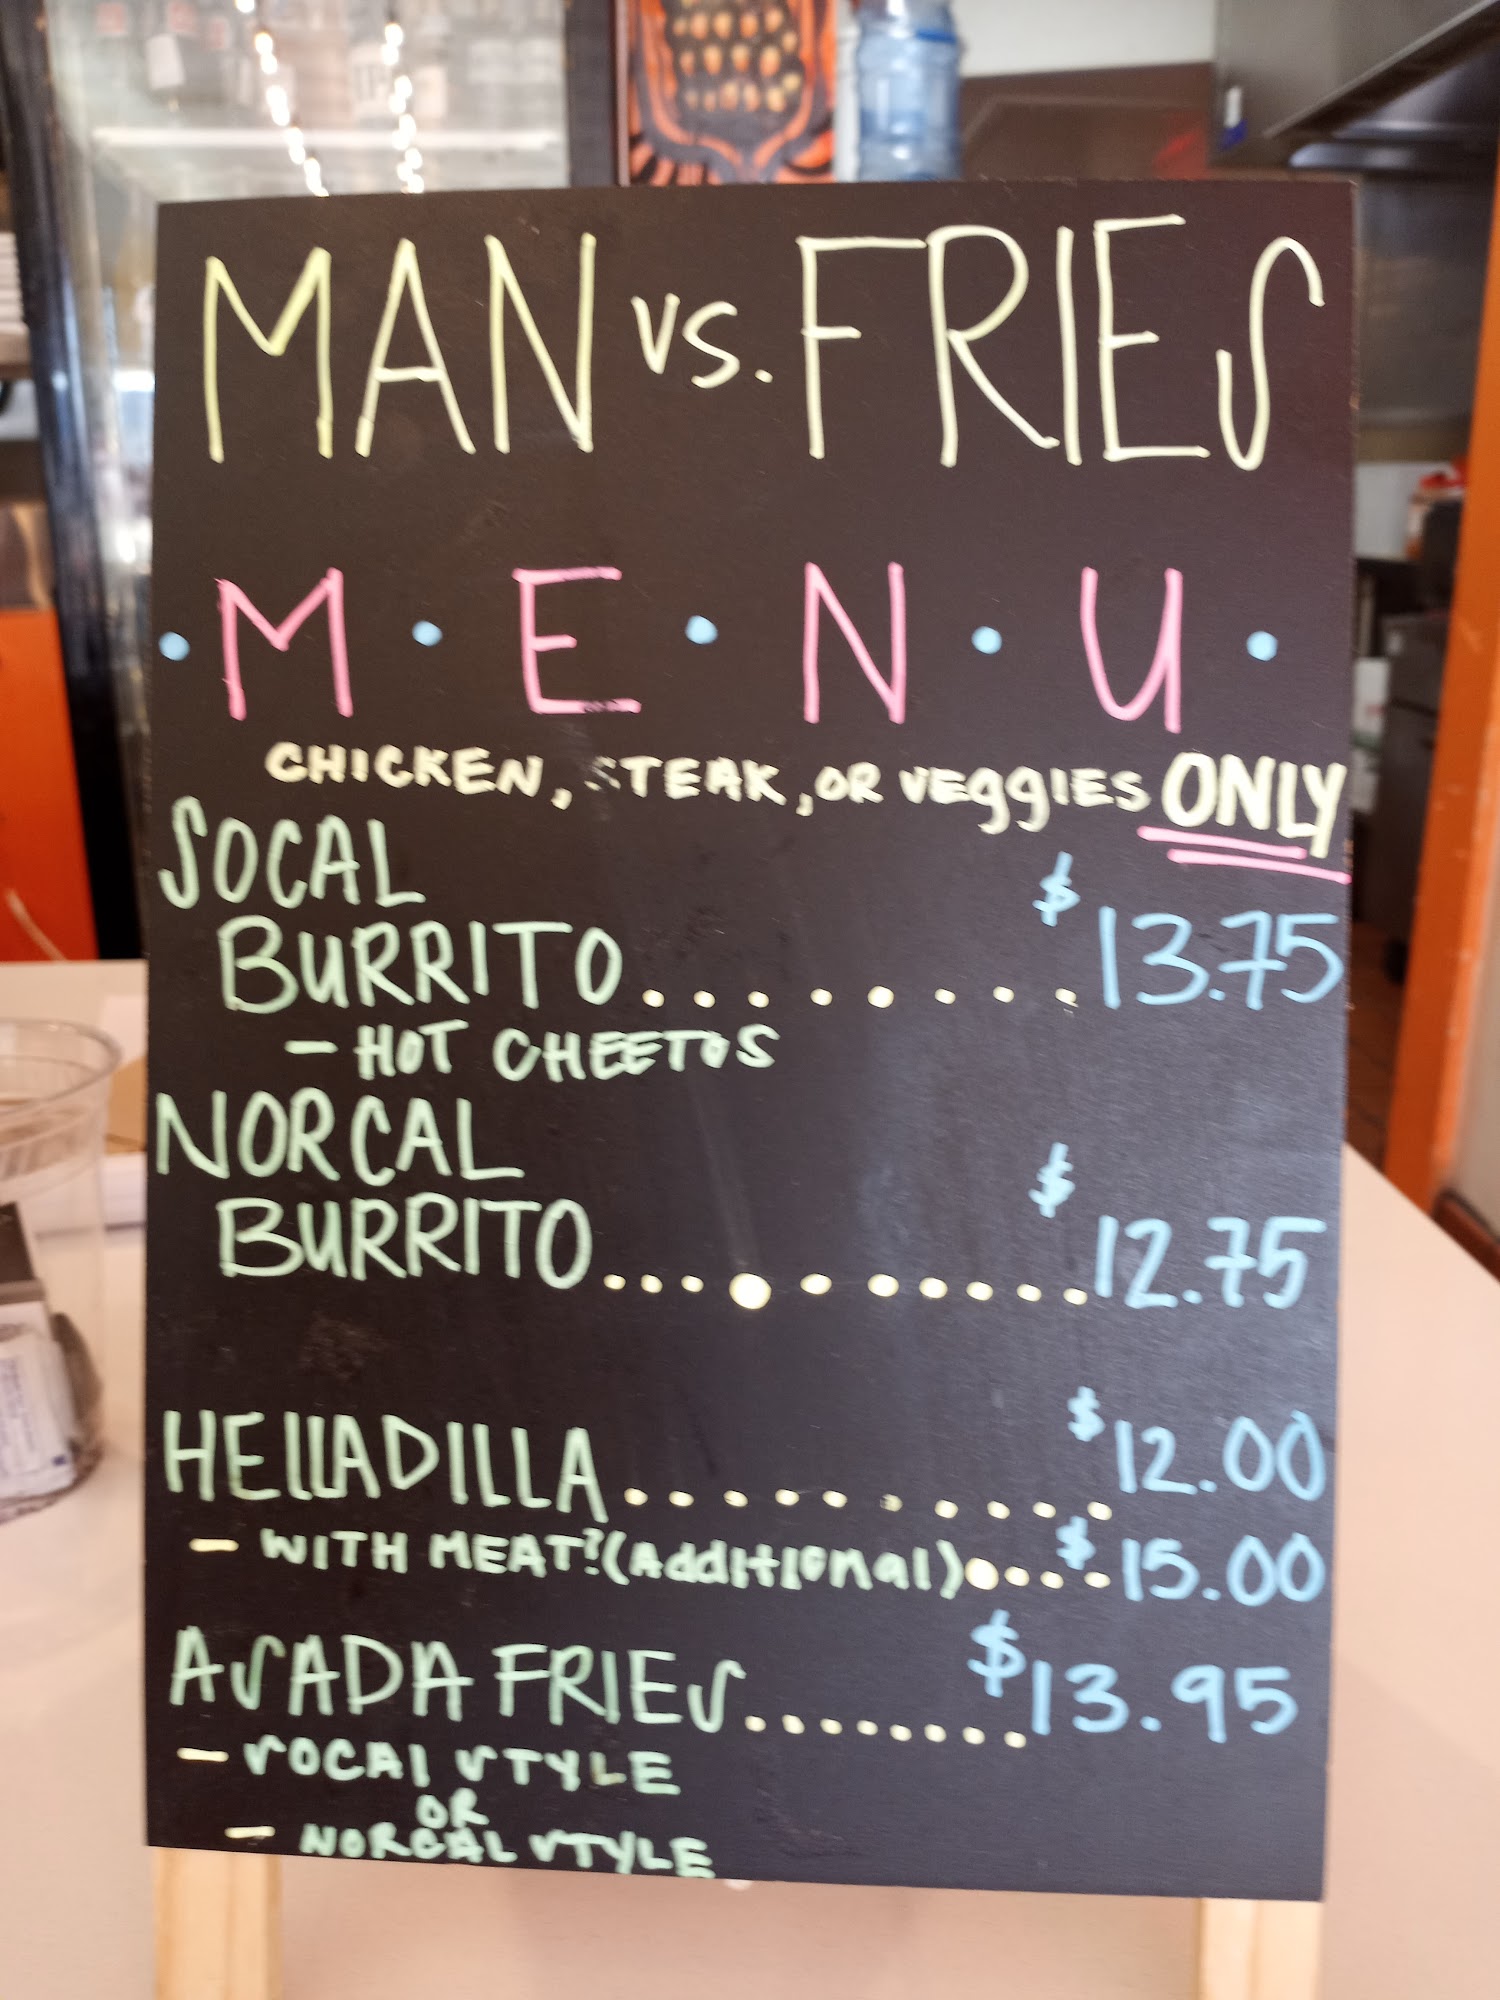 MAN vs. FRIES
• M • E • N • U •
CHICKEN, STEAK, OR VEGGIES ONLY
SOCAL
BURRITO......... $13.75
- HOT CHEETOS
NORCAL
BURRITO.......... $12.75
HELLADILLA.......... $12.00
- WITH MEAT? (Additional).... $15.00
ASADA FRIES........ $13.95
- SOCAL STYLE
OR
- NORCAL STYLE